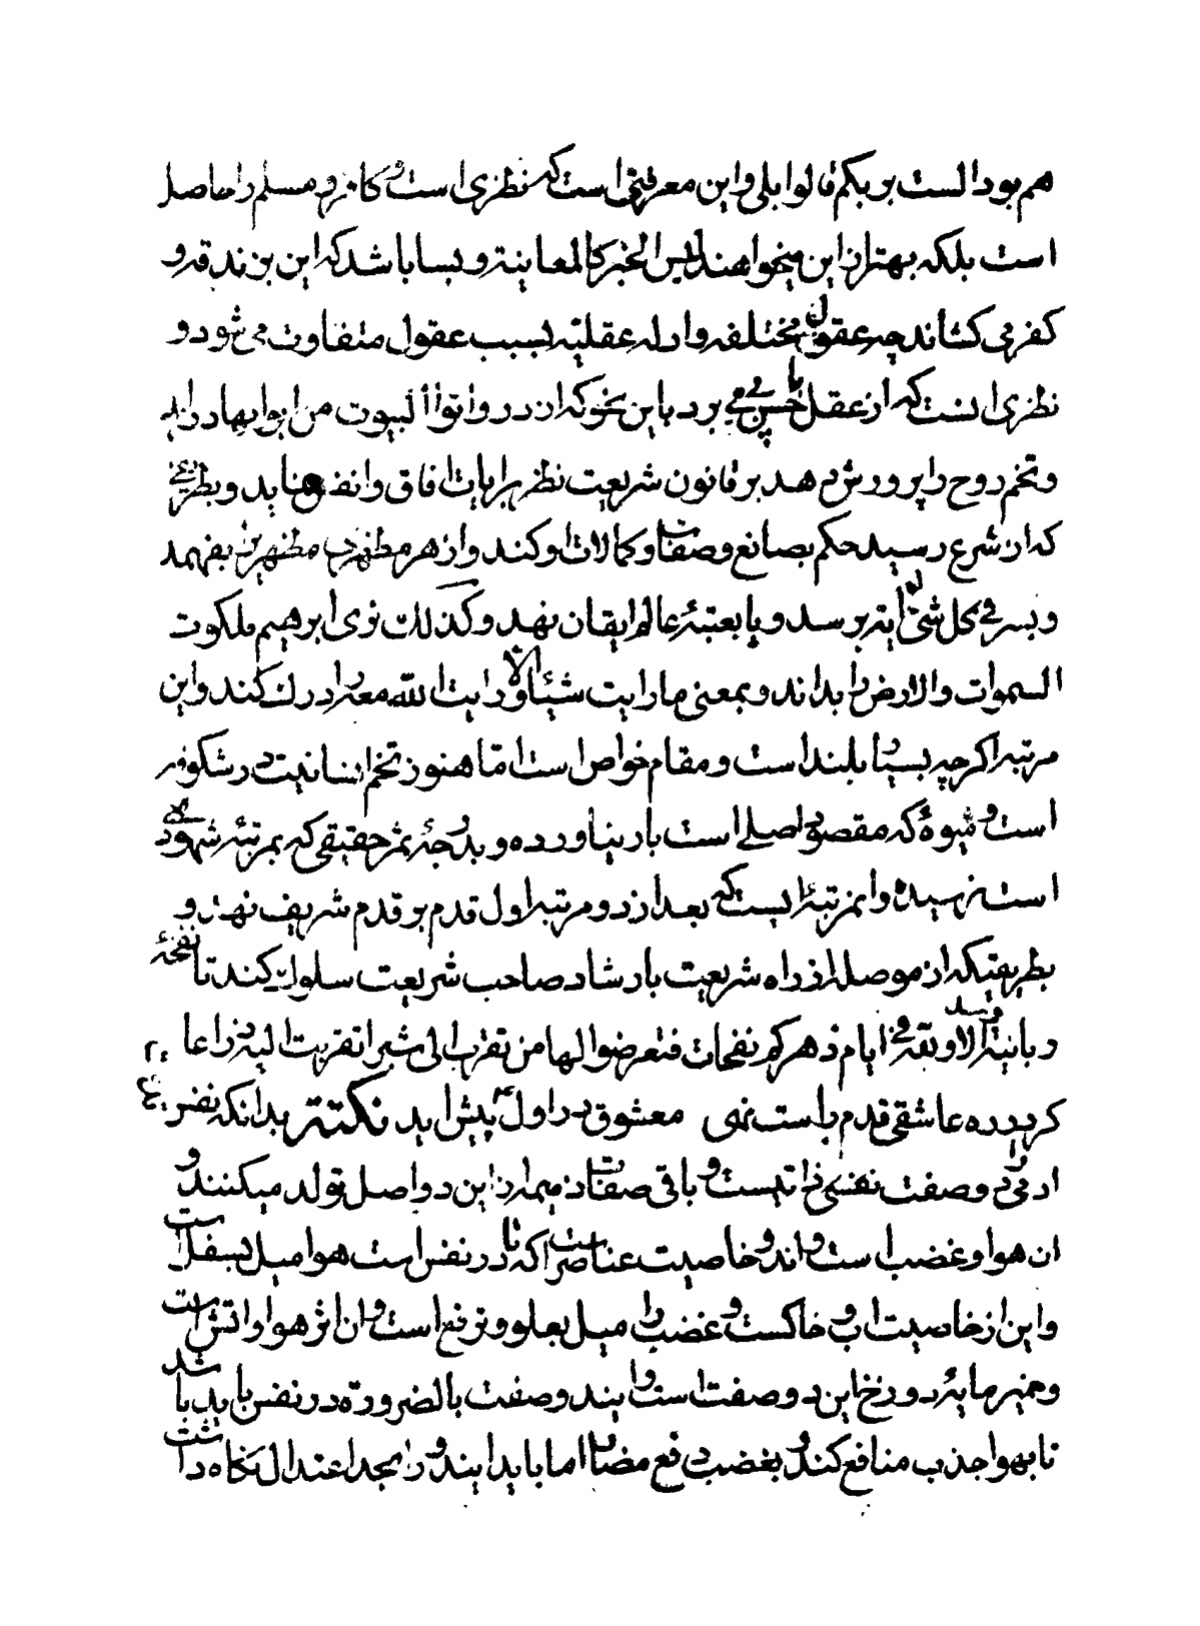 هم بود الست بربکم قالوا بلی و این معرفتی است که نظری است و کافر و مسلم را حاصل
است بلکه بهتر از این میخواهند لیس الخبر کالمعاینة و بسا باشد که این بزندقه و
کفر می کشاند چه عقول مختلفه و ادله عقلیه بسبب عقول متفاوت می شود و
نظری انست که از عقل با حسن پی می برد باین نحو که از در واتوا البیوت من ابوابها در اید
و تخم روح را پرورش دهد بر قانون شریعت نظر بر ایات افاق و انفس نماید و بطریقی
که از شرع رسیده حکم بصانع و صفات و کمالات او کند و از هر مظهری مظهری بفهمد
و بسر فی کل شئ له ایة برسد و پا بعتبهٔ عالم ایقان نهد و کذلک نری ابرهیم ملکوت
السموات والارض را بداند و بمعنی ما رایت شیئا الا و رایت الله معه را درک کند و این
مرتبه اگرچه بسیار بلند است و مقام خواص است اما هنوز تخم انسانیت در شکوفه
است و میوهٔ که مقصود اصلی است بار نیاورده و بدرجهٔ ثمر حقیقی که بمرتبهٔ شهودی
است نرسیده و ان مرتبهٔ ایست که بعد از دو مرتبه اول قدم بر قدم شریف نهد و
بطریقتیکه ان موصله از راه شریعت بارشاد صاحب شریعت سلوک کند تا نفحهٔ
ربانیة الا و لله فی ایام دهرکم نفحات فتعرضوا لها من تقرب الی شبرا تقربت الیه ذراعا
کر در ره عاشقی قدم راست نهی معشوق در اول پیش اید نکته بدانکه نفس
ادمی را دو صفت نفسی ذاتیست و باقی صفات ذمیمه از این دو اصل تولد میکنند و
ان هوا و غضب است و اند و خاصیت عناصر است که تا در نفس است هوا میل بسفل است
و این از خاصیت اب و خاکست و غضب را میل بعلو و ترفع است و ان اثر هوا و اتش است
و خمیر مایهٔ دوزخ این دو صفت است و ایند و صفت بالضروره در نفس باید باشد
تا بهوا جذب منافع کند و بغضب دفع مضار اما باید ایندو را بحد اعتدال نگاه داشت